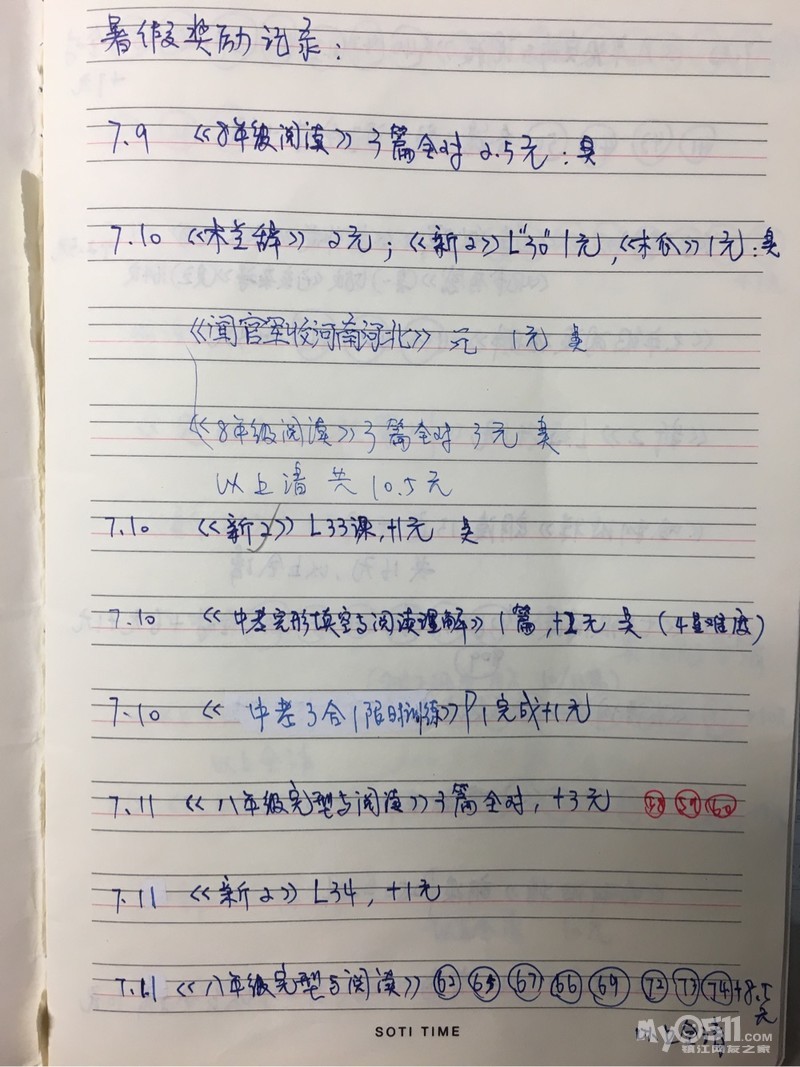 暑假奖励记录：
7.9 《8年级阅读》3篇全对 2.5元：吴
7.10 《木兰辞》2元；《新2》L"30"1元，《木瓜》1元：吴
《闻官军收河南河北》元 1元 吴
《8年级阅读》3篇全对 3元 吴
以上清 共10.5元
7.10 《新2》L33课，+1元 吴
7.10 《中考完形填空与阅读理解》1篇，+2元 吴（4星难度）
7.10 《中考3合1限时训练》P1完成+1元
7.11 《八年级完型与阅读》3篇全对，+3元 58 59 60
7.11 《新2》L34，+1元
7.11 《八年级完型与阅读》62 65 67 66 69 72 73 74 +8.5元
SOTI TIME
以上
My0511.COM
镇江网友之家